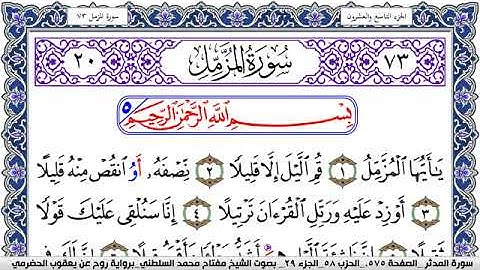 الجزء التاسع والعشرون سورة المزمل ٧٣
٧٣ سُورَةُ المُزَّمِّل ٢٠
بِسْمِ ٱللَّهِ ٱلرَّحْمَٰنِ ٱلرَّحِيمِ ٥
يَٰٓأَيُّهَا ٱلْمُزَّمِّلُ ١ قُمِ ٱلَّيْلَ إِلَّا قَلِيلًا ٢ نِّصْفَهُۥٓ أَوُ ٱنقُصْ مِنْهُ قَلِيلًا
٣ أَوْ زِدْ عَلَيْهِ وَرَتِّلِ ٱلْقُرْءَانَ تَرْتِيلًا ٤ إِنَّا سَنُلْقِى عَلَيْكَ قَوْلًا
سورة المدثر_ الصفحة ٥٧٥_ الحزب ٥٨_ الجزء ٢٩_ بصوت الشيخ مفتاح محمد السلطني_ برواية روح عن يعقوب الحضرمي